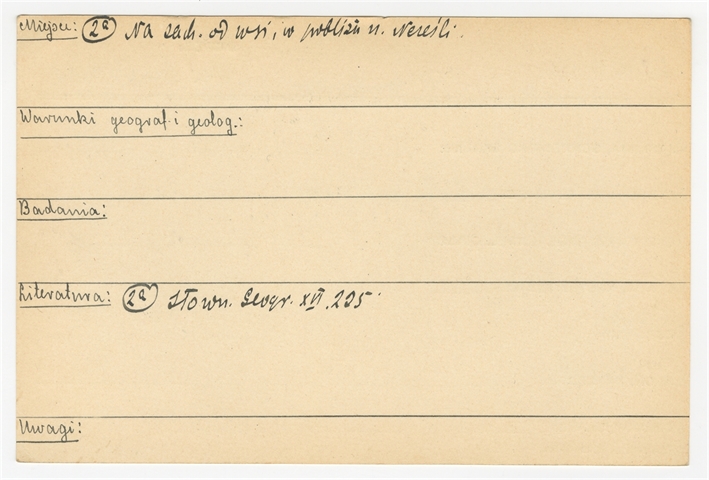 Miejsce: 2a Na zach. od wsi, w pobliżu rz. Nereśli.
Warunki geograf. i geolog.:
Badania:
Literatura: 2a Słown. Geogr. XII. 205
Uwagi: